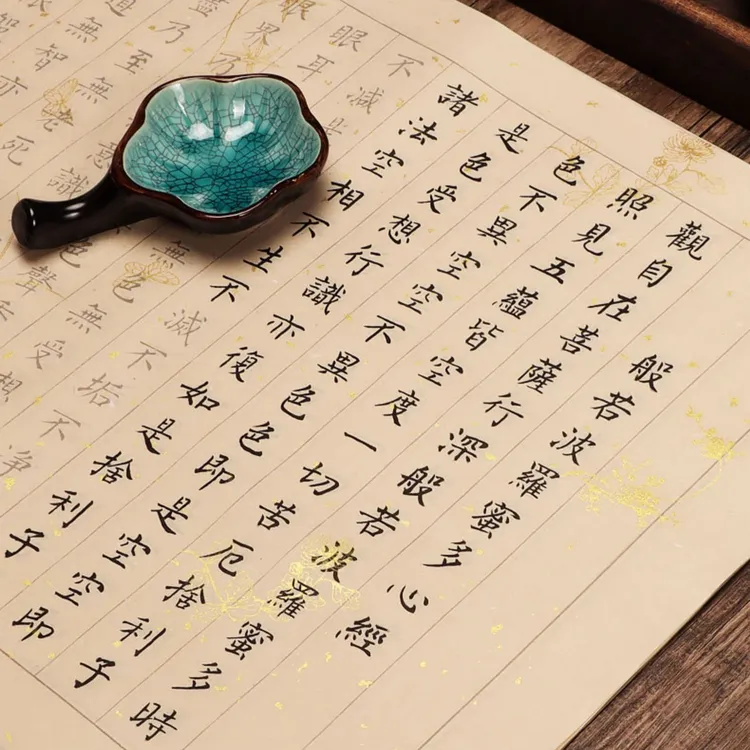 般若波羅蜜多心經
觀自在菩薩行深般若波羅蜜多時
照見五蘊皆空度一切苦厄捨利子
色不異空空不異色色即是空空即
是色受想行識亦復如是捨利子
諸法空相不生不滅不垢不淨
不減是無色無受想
眼耳色聲
眼界乃意識
盡乃至無老死
道無智亦